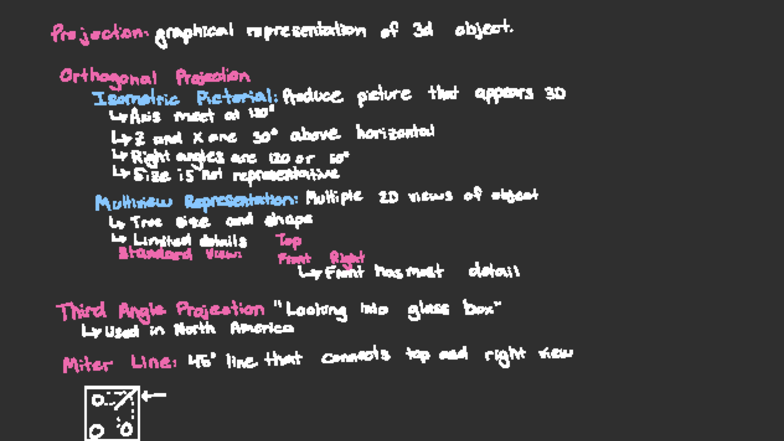 Projection: graphical representation of 3d object.
Orthogonal Projection
Isometric Pictorial: Produce picture that appears 3D
↳ Axis meet at 120°
↳ Z and X are 30° above horizontal
↳ Right angles are 120 or 60°
↳ Size is not representative
Multiview Representation: Multiple 2D views of object
↳ True size and shape
↳ Limited details
Standard View: Top
Front Right
↳ Front has most detail
Third Angle Projection "Looking into glass box"
↳ Used in North America
Miter Line: 45° line that connects top and right view